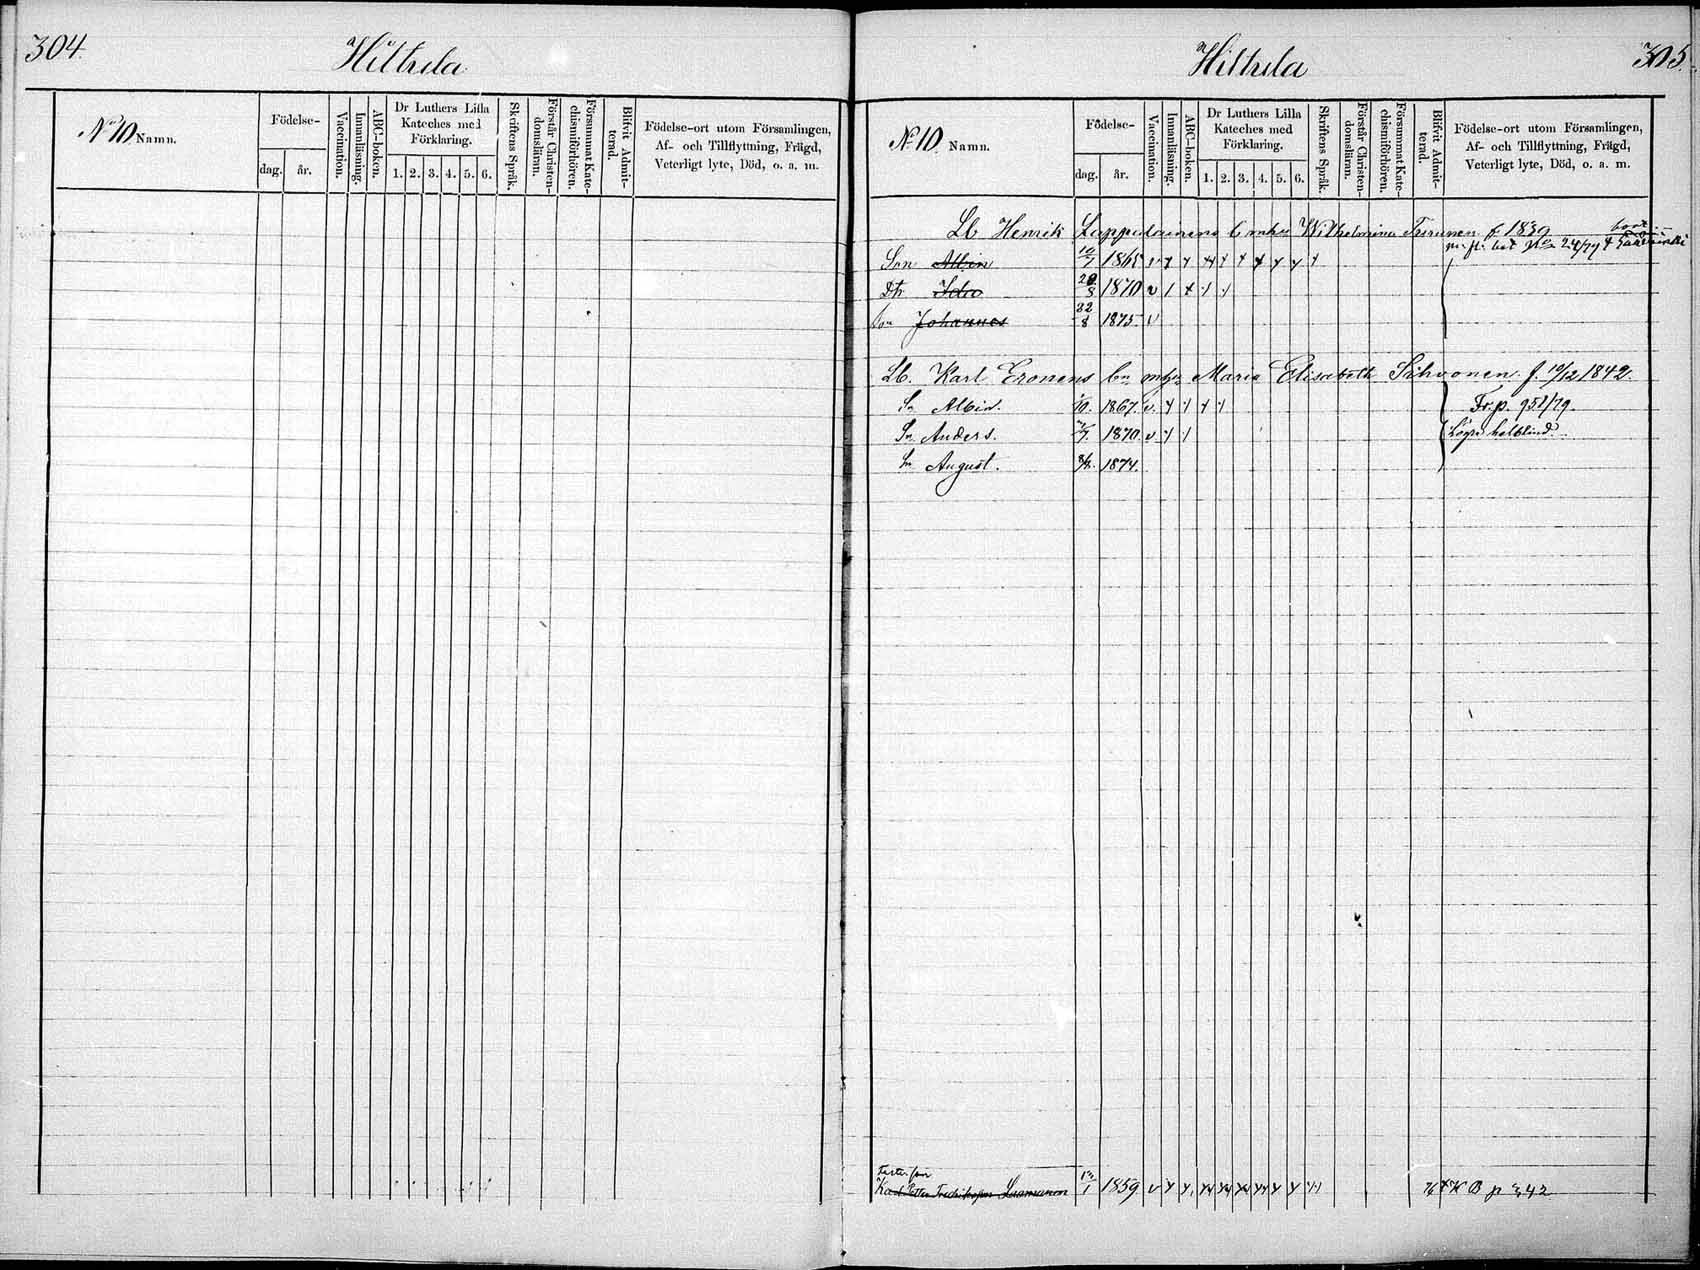 304.
Hiltula
No 10 Namn.
Födelse-
dag. år.
Vaccination.
Innanläsning.
ABC-boken.
Dr Luthers Lilla Kateches med Förklaring.
1. 2. 3. 4. 5. 6.
Skriftens Språk.
Förstår Christendomsläran.
Försummat Katechismiförhören.
Blifvit Admitterad.
Födelse-ort utom Församlingen,
Af- och Tillflyttning, Frägd,
Veterligt lyte, Död, o. a. m.
Hiltula
305.
No 10 Namn.
Födelse-
dag. år.
Vaccination.
Innanläsning.
ABC-boken.
Dr Luthers Lilla Kateches med Förklaring.
1. 2. 3. 4. 5. 6.
Skriftens Språk.
Förstår Christen-domsläran.
Försummat Kate-chismiförhören.
Blifvit Admit-terad.
Födelse-ort utom Församlingen,
Af- och Tillflyttning, Frägd,
Veterligt lyte, Död, o. a. m.
Lb Henrik Lappalainens Wilhelmina f 1839
Son Albin 1865
Dtr Ida 1870
Son Johannes 22/8 1875 v
Lb. Karl Eronens Maria Elisabeth Sihvonen f. 19/12 1842.
Sn Albin. 1867. v
Fr. p. 952/79.
Sn Anders. 1870. v
halfblind.
Sn August. 1874.
Karl Petter Fredriksson Laamanen 1859 v
K B p 342